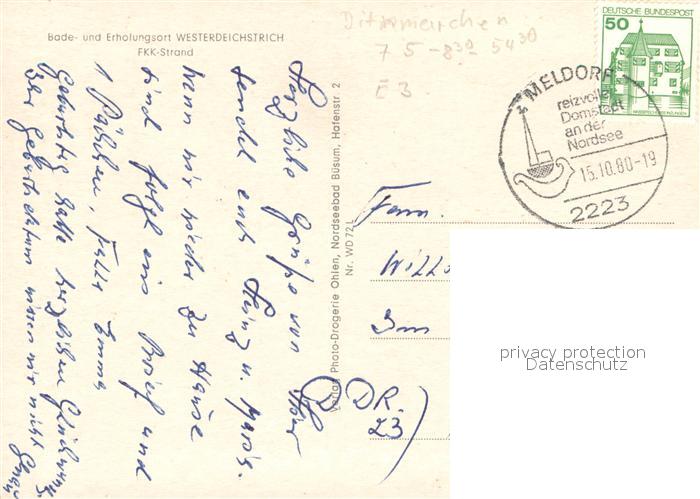 Bade- und Erholungsort WESTERDEICHSTRICH
FKK-Strand
Ditmarschen
7 5-8 30 5430
E 3
DEUTSCHE BUNDESPOST
50
MELDORF
reizvolle
Domstadt
an der
Nordsee
15.10.80-19
2223
Herzliche Grüße von
sendet euch Heinz u. Maria.
Wenn wir wieder zu Hause
sind folgt ein Brief und
1 Päckchen, Falls Emma
Geburtstag hatte herzlichen Glückwunsch
Das Geburtsdatum wissen wir nicht genau
Verlag Photo-Drogerie Ohlen, Nordseebad Büsum, Hafenstr. 2
Nr. WD 72
Fam.
DDR.
23
privacy protection
Datenschutz